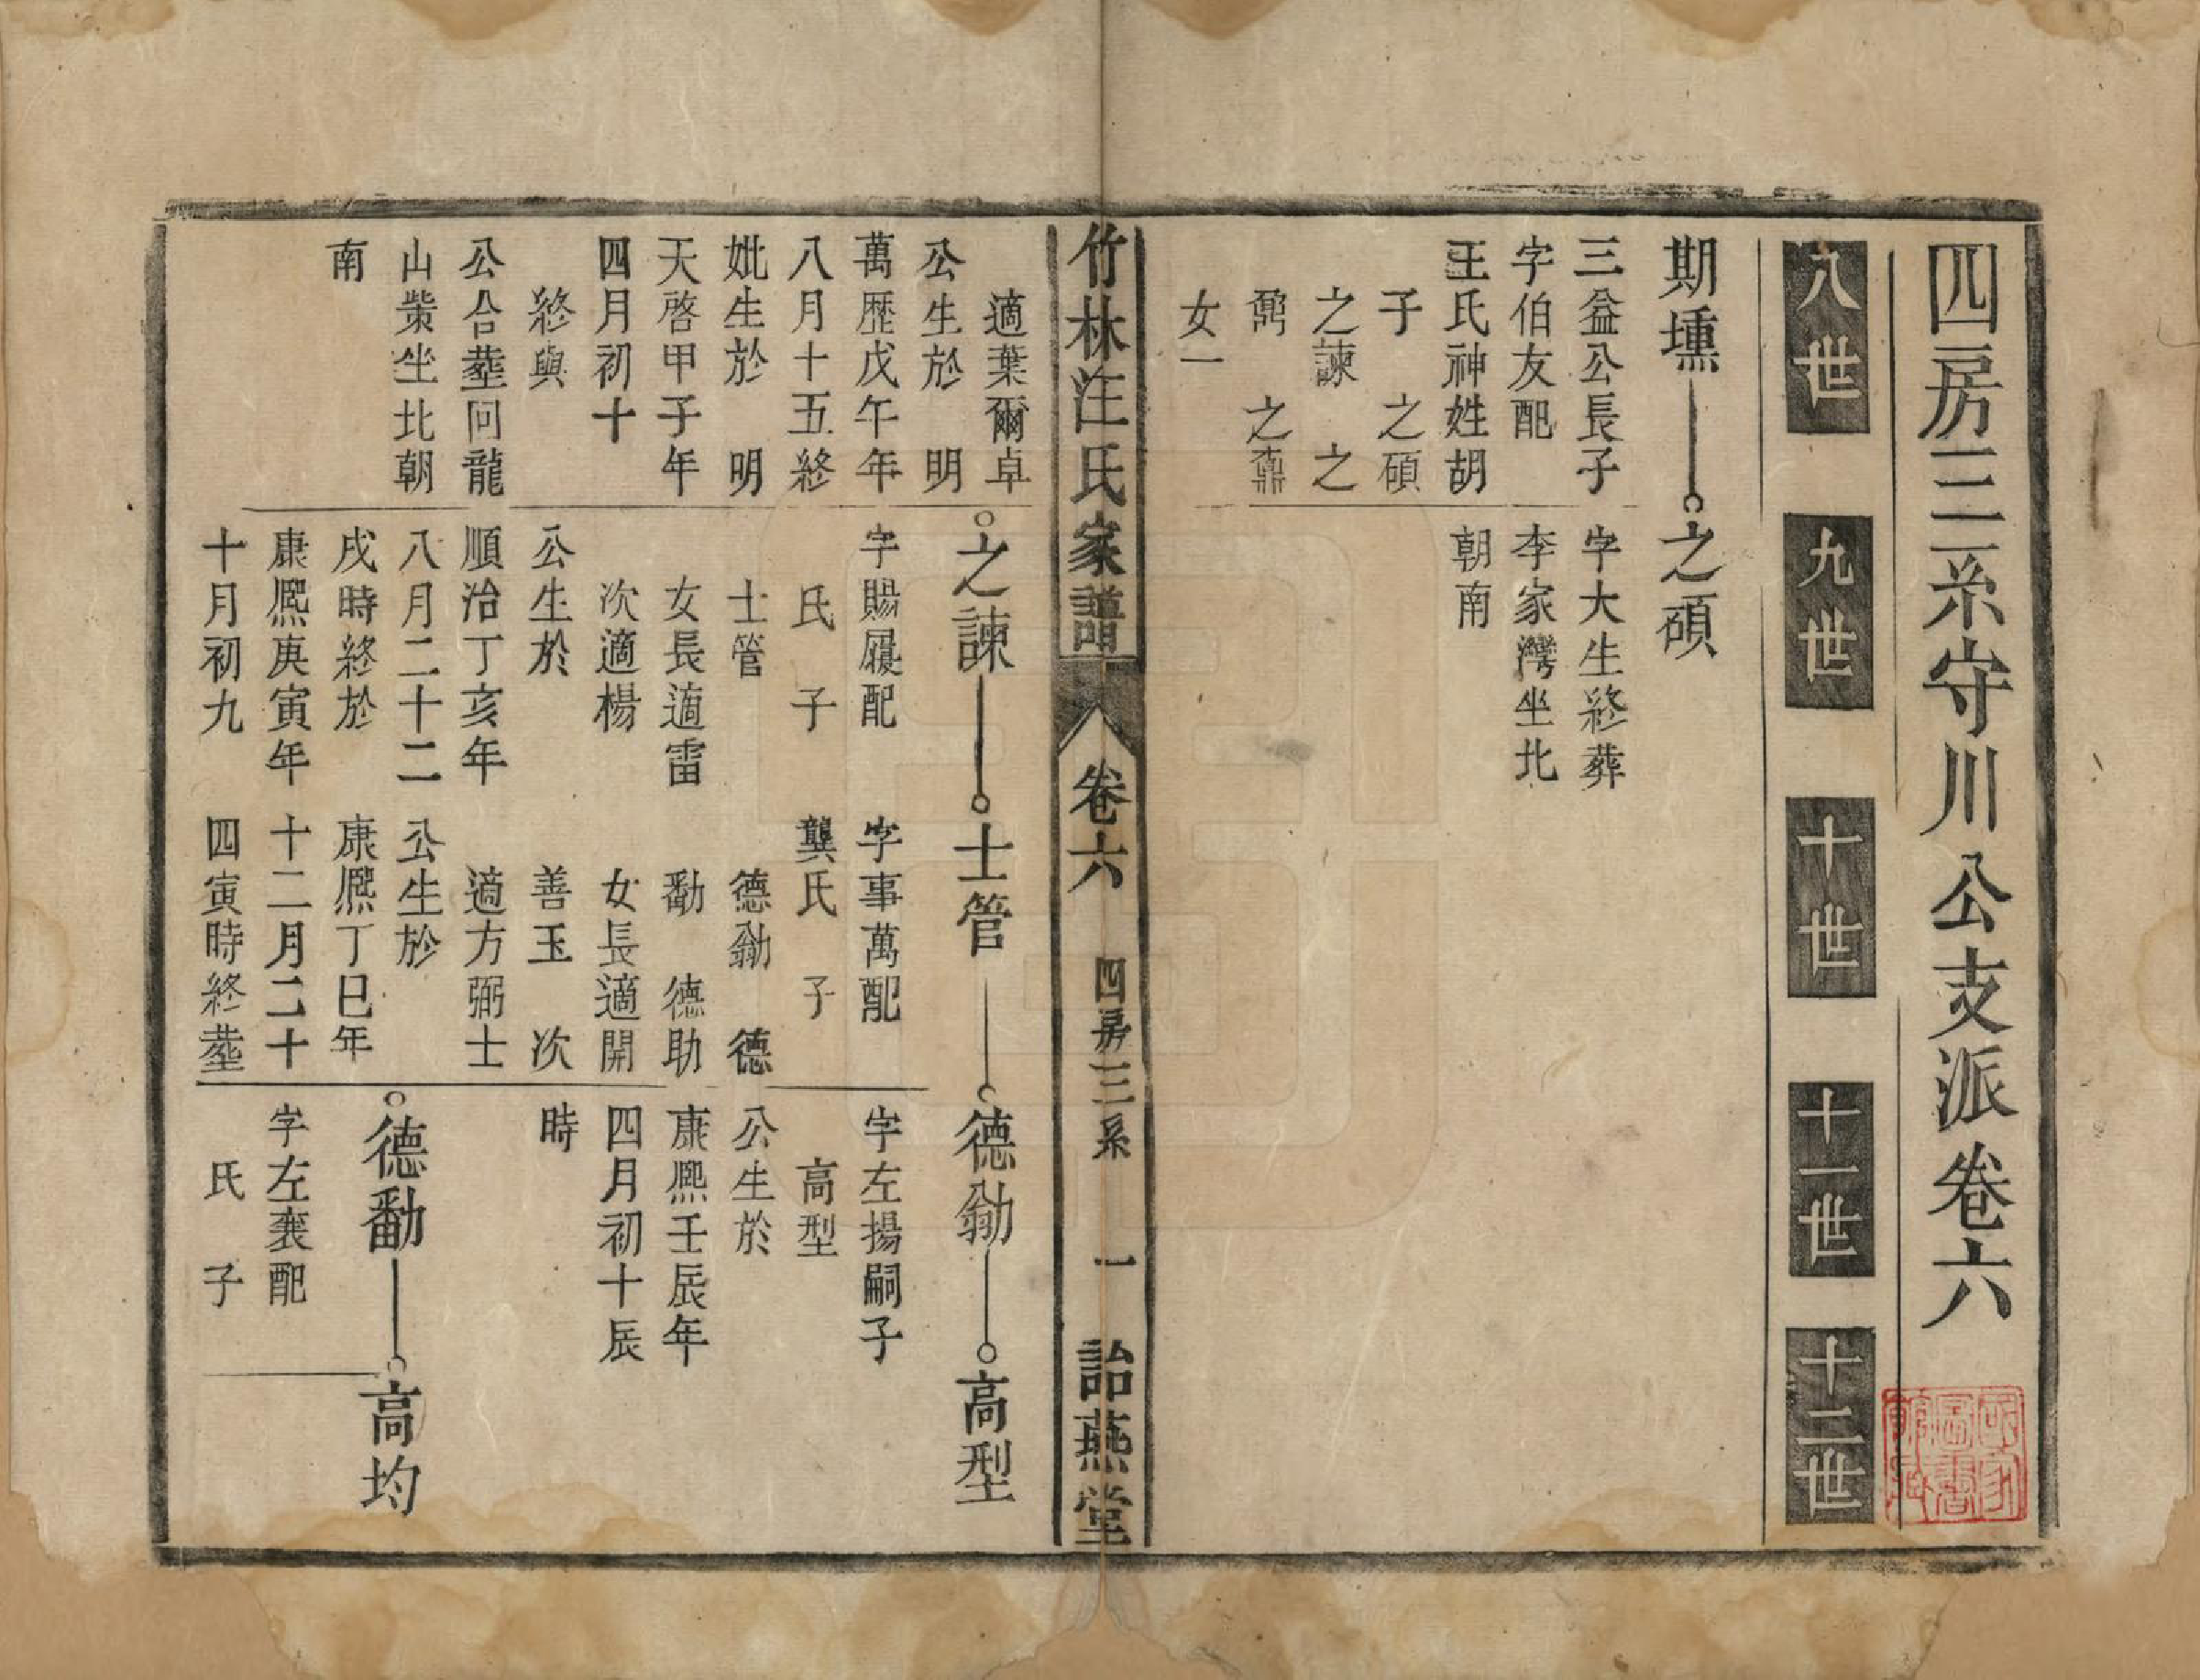 四房三系守川公支派卷六
八世
九世
十世
十一世
十二世
期壎
之碩
三益公長子
字伯友配
王氏神姓胡
子 之碩
之諫 之
鼒 之鼐
女一
字大生終葬
李家灣坐北
朝南
竹林汪氏家譜
卷六
四房三系
一
詒燕堂
適葉爾卓
公生於 明
萬歷戊午年
八月十五終
妣生於 明
天啓甲子年
四月初十
終與
公合塟回龍
山柴坐北朝
南
之諫
士管
德勤
高型
字賜履配
氏 子
士管
女長適雷
次適楊
公生於
順治丁亥年
八月二十二
戌時終於
康熙庚寅年
十月初九
字事萬配
龔氏 子
德勤 德
勷 德助
女長適開
善玉 次
適方弼士
公生於
康熙丁巳年
十二月二十
四寅時終塟
字左揚嗣子
高型
公生於
康熙壬辰年
四月初十辰
時
德勷
高均
字左襄配
氏 子
國家圖書館藏